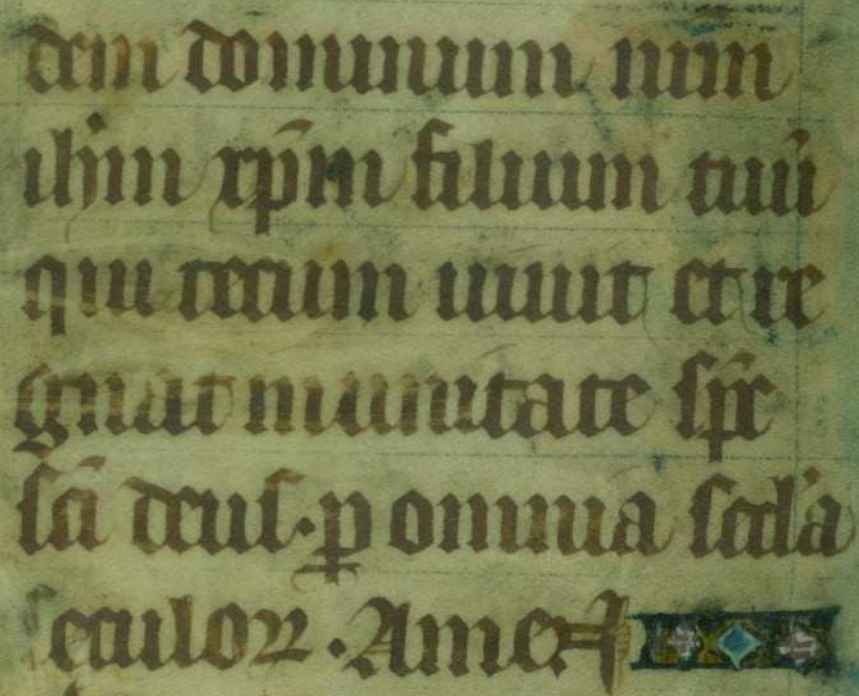 dem dominum nrm
ihm xpm filium tuū
qui tecum uiuit et re
gnat in unitate spc
sci deus. p omnia secla
eculoꝝ. Amen